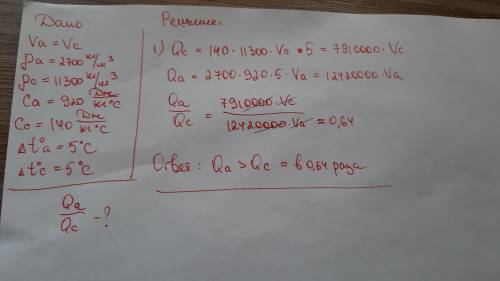 Дано:
Vа = Vс
ρа = 2700 кг/м³
ρс = 11300 кг/м³
Cа = 920 Дж/кг°C
Cс = 140 Дж/кг°C
Δt°а = 5°C
Δt°с = 5°C
Qа/Qс - ?
Решение:
1) Qс = 140 · 11300 · Vс · 5 = 7910000 · Vс
Qа = 2700 · 920 · 5 · Vа = 12420000 · Vа
Qа/Qс = 7910000 · Vс / 12420000 · Vа ≈ 0,64
Ответ: Qа > Qс ≈ в 0,64 раза